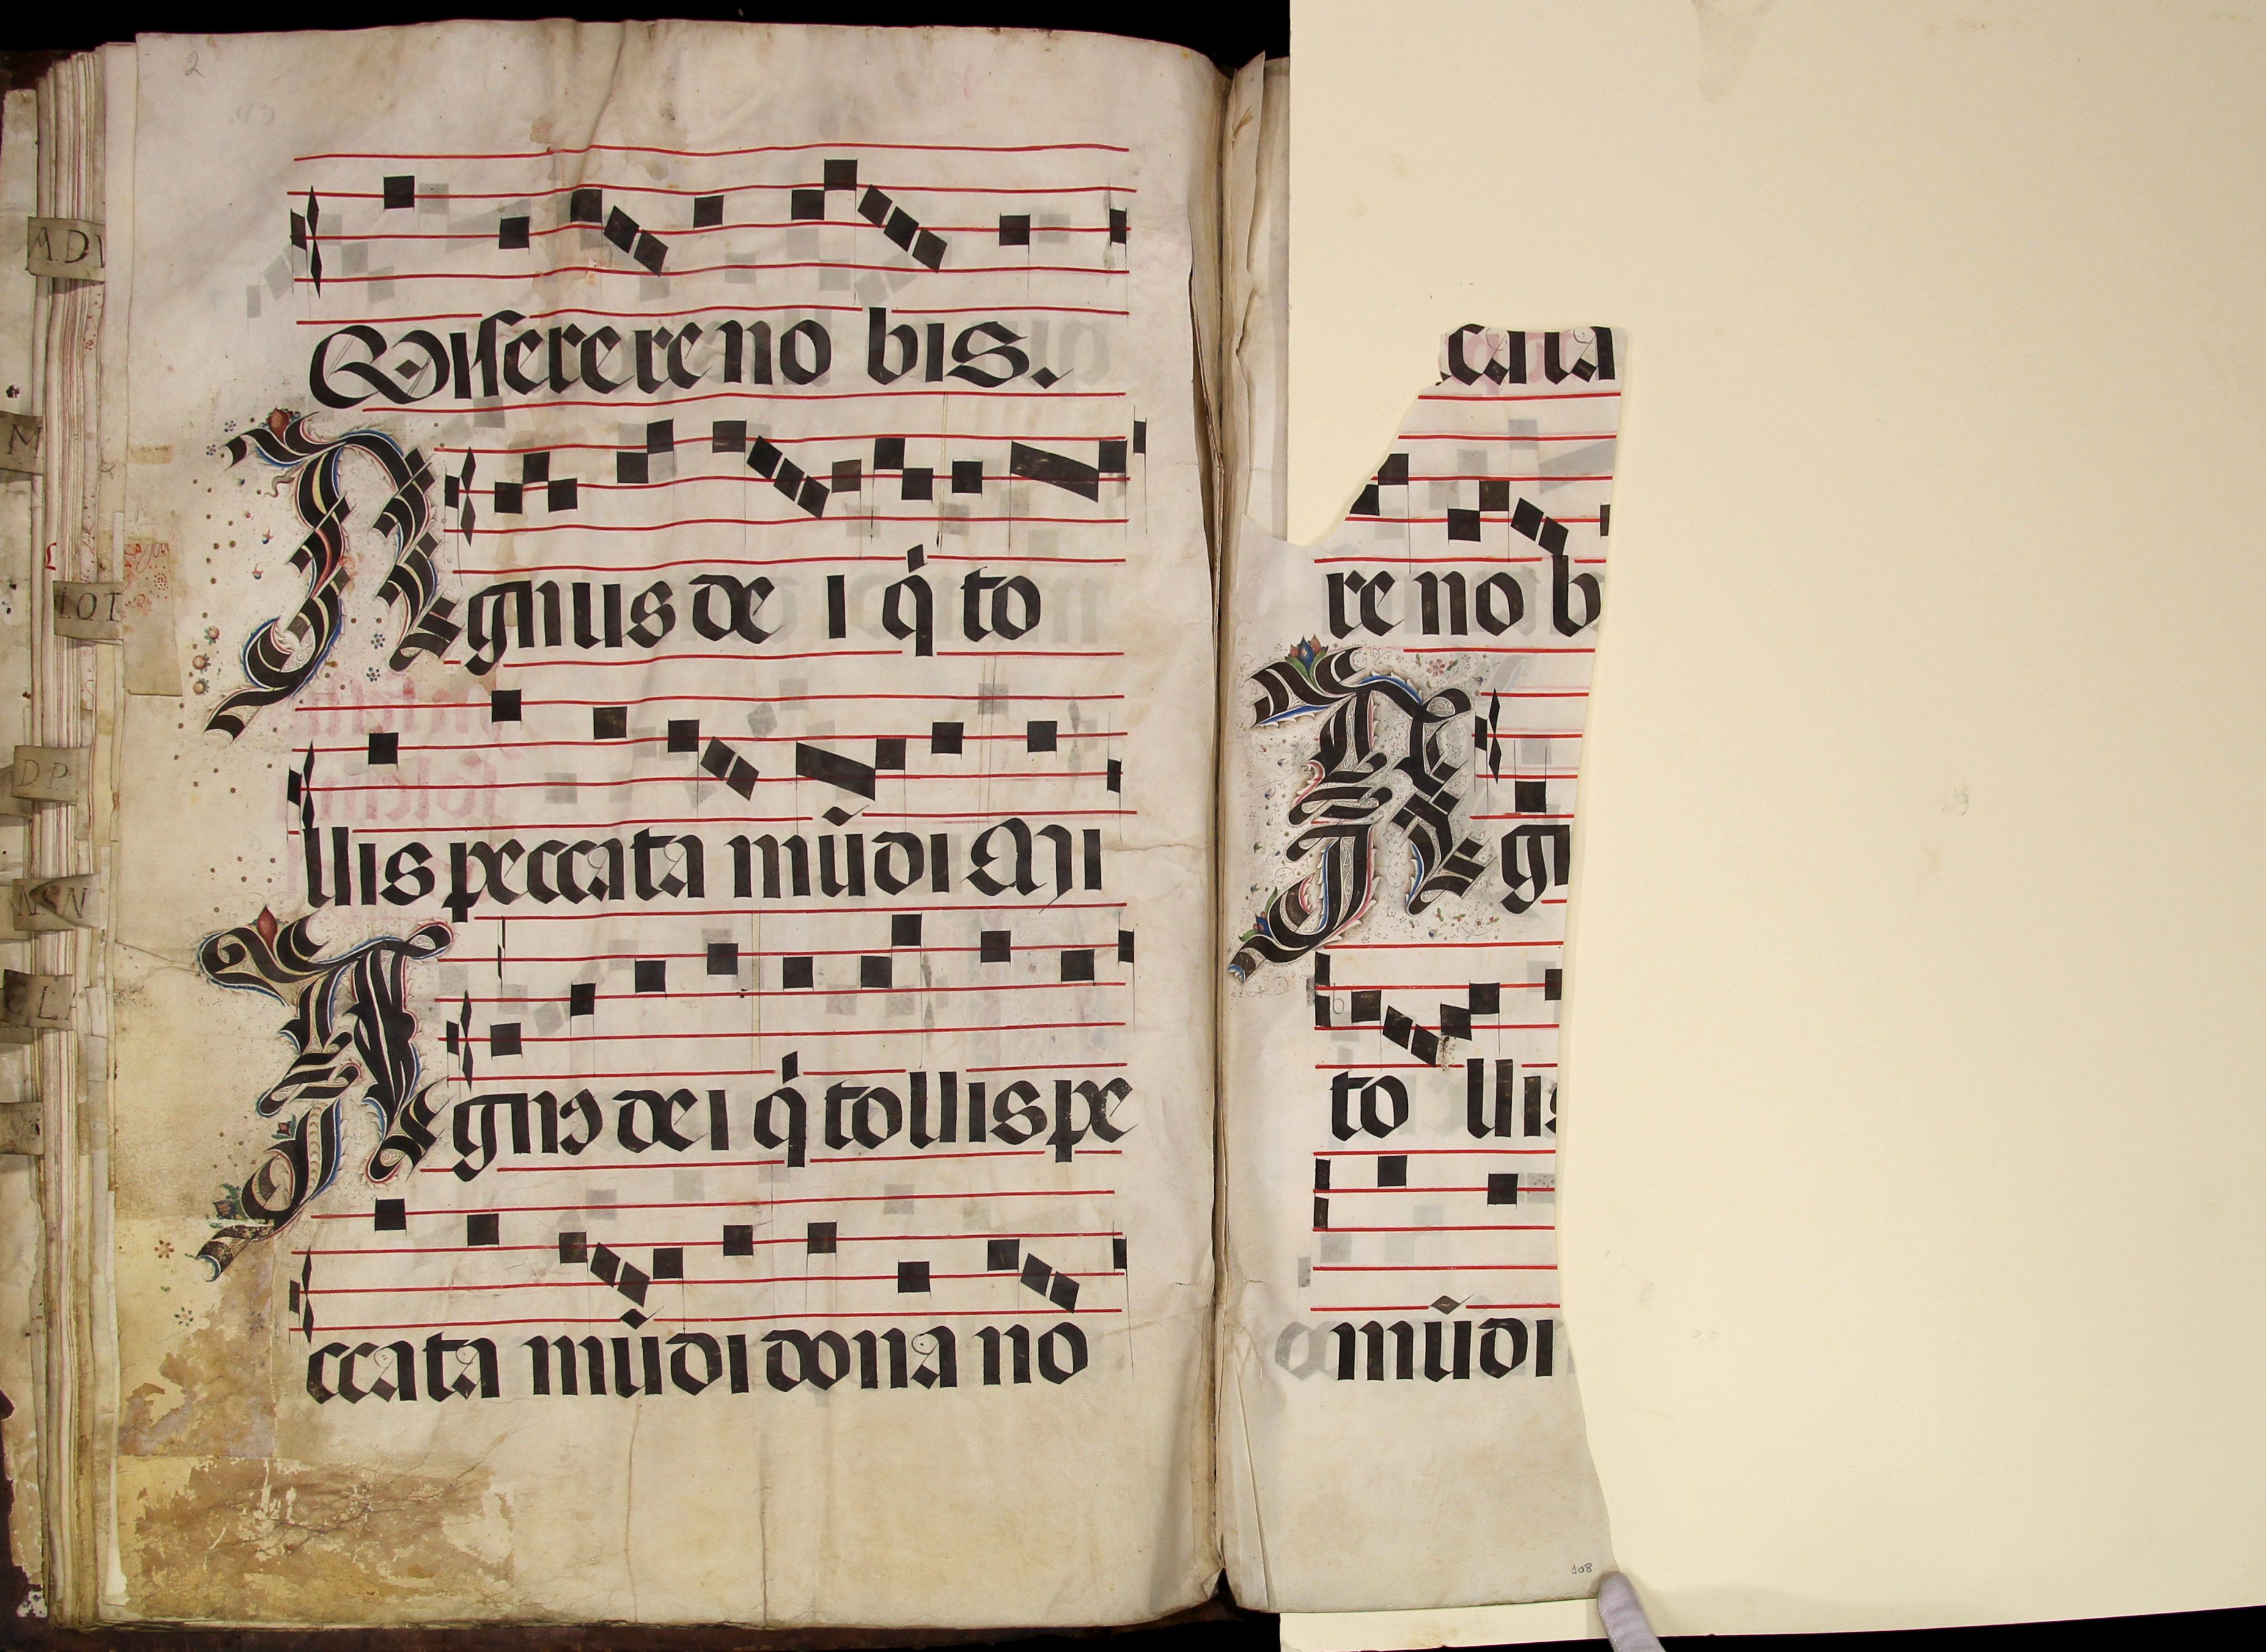 2
A.D
M
LOT
D P.
L
Miserere no bis.
Agnus de i q̇ to
llis peccata mūdi Mi
Agnꝰ dei q̇ tollis pe
ccata mūdi dona no
cata
re no b
Ag
to llis
mūdi
108